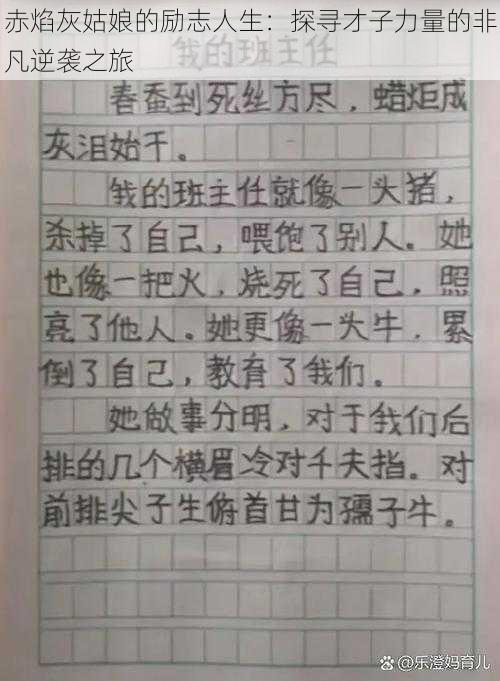 赤焰灰姑娘的励志人生：探寻才子力量的非
凡逆袭之旅
我的班主任
春蚕到死丝方尽，蜡炬成
灰泪始干。
我的班主任就像一头猪，
杀掉了自己，喂饱了别人。她
也像一把火，烧死了自己，照
亮了他人。她更像一头牛，累
倒了自己，教育了我们。
她做事分明，对于我们后
排的几个横眉冷对千夫指。对
前排尖子生俯首甘为孺子牛。
@乐澄妈育儿